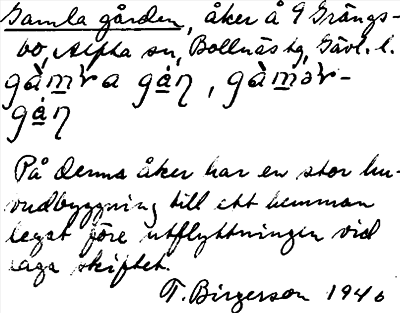 Gamla gården, åker å 9 Grängs-
bo, Alfta sn, Bollnäs tg, Gävl. l.
gàm̲ra gá̲ŋ, gàm̲ər-
gá̲ŋ
På denna åker har en stor hu-
vudbyggning till ett hemman
legat före utflyttningen vid
laga skiftet.
T. Birgerson 1940